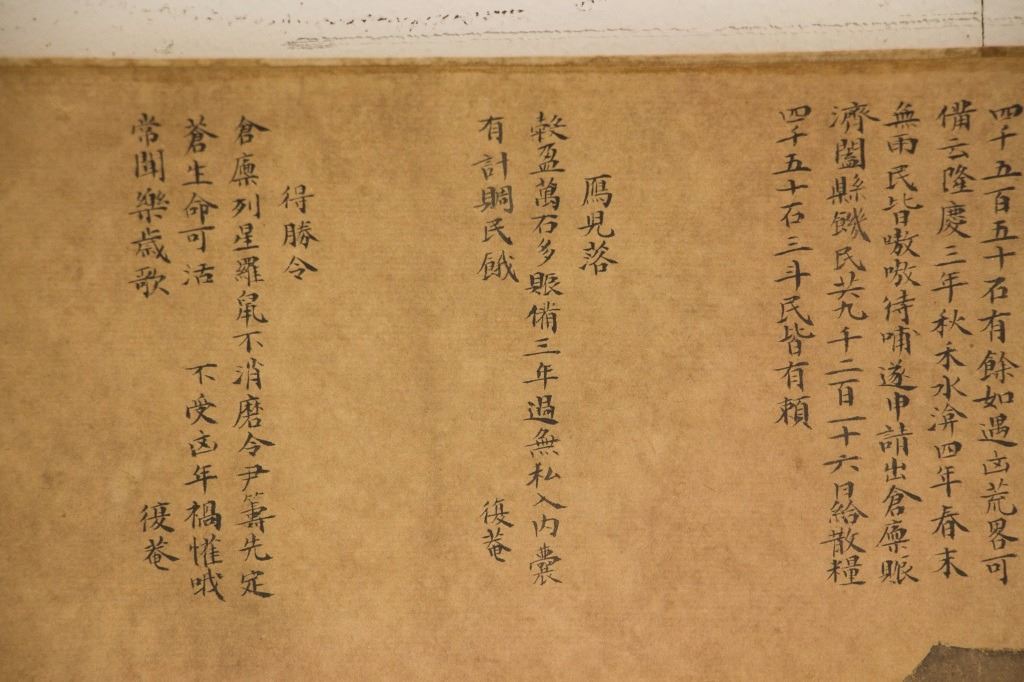 四千五百五十石有餘如遇凶荒畧可
備云隆慶三年秋禾水渰四年春末
無雨民皆嗷嗷待哺遂申請出倉廩賑
濟闔縣饑民共九千二百一十六日給散糧
四千五十石三斗民皆有賴
鴈兒落
穀盈萬石多賑備三年過無私入内囊
有計賙民餓 復菴
得勝令
倉廩列星羅鼠不消磨令尹籌先定
蒼生命可活 不受凶年禍懽哦
常聞樂歲歌 復菴